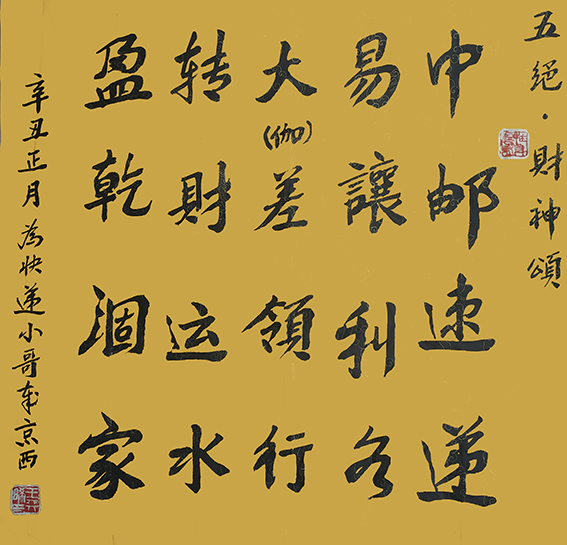 五絕·財神頌
中邮速递
易讓利各
大(伽)差領行
转財运水
盈乾涸家
辛丑正月為快递小哥京西